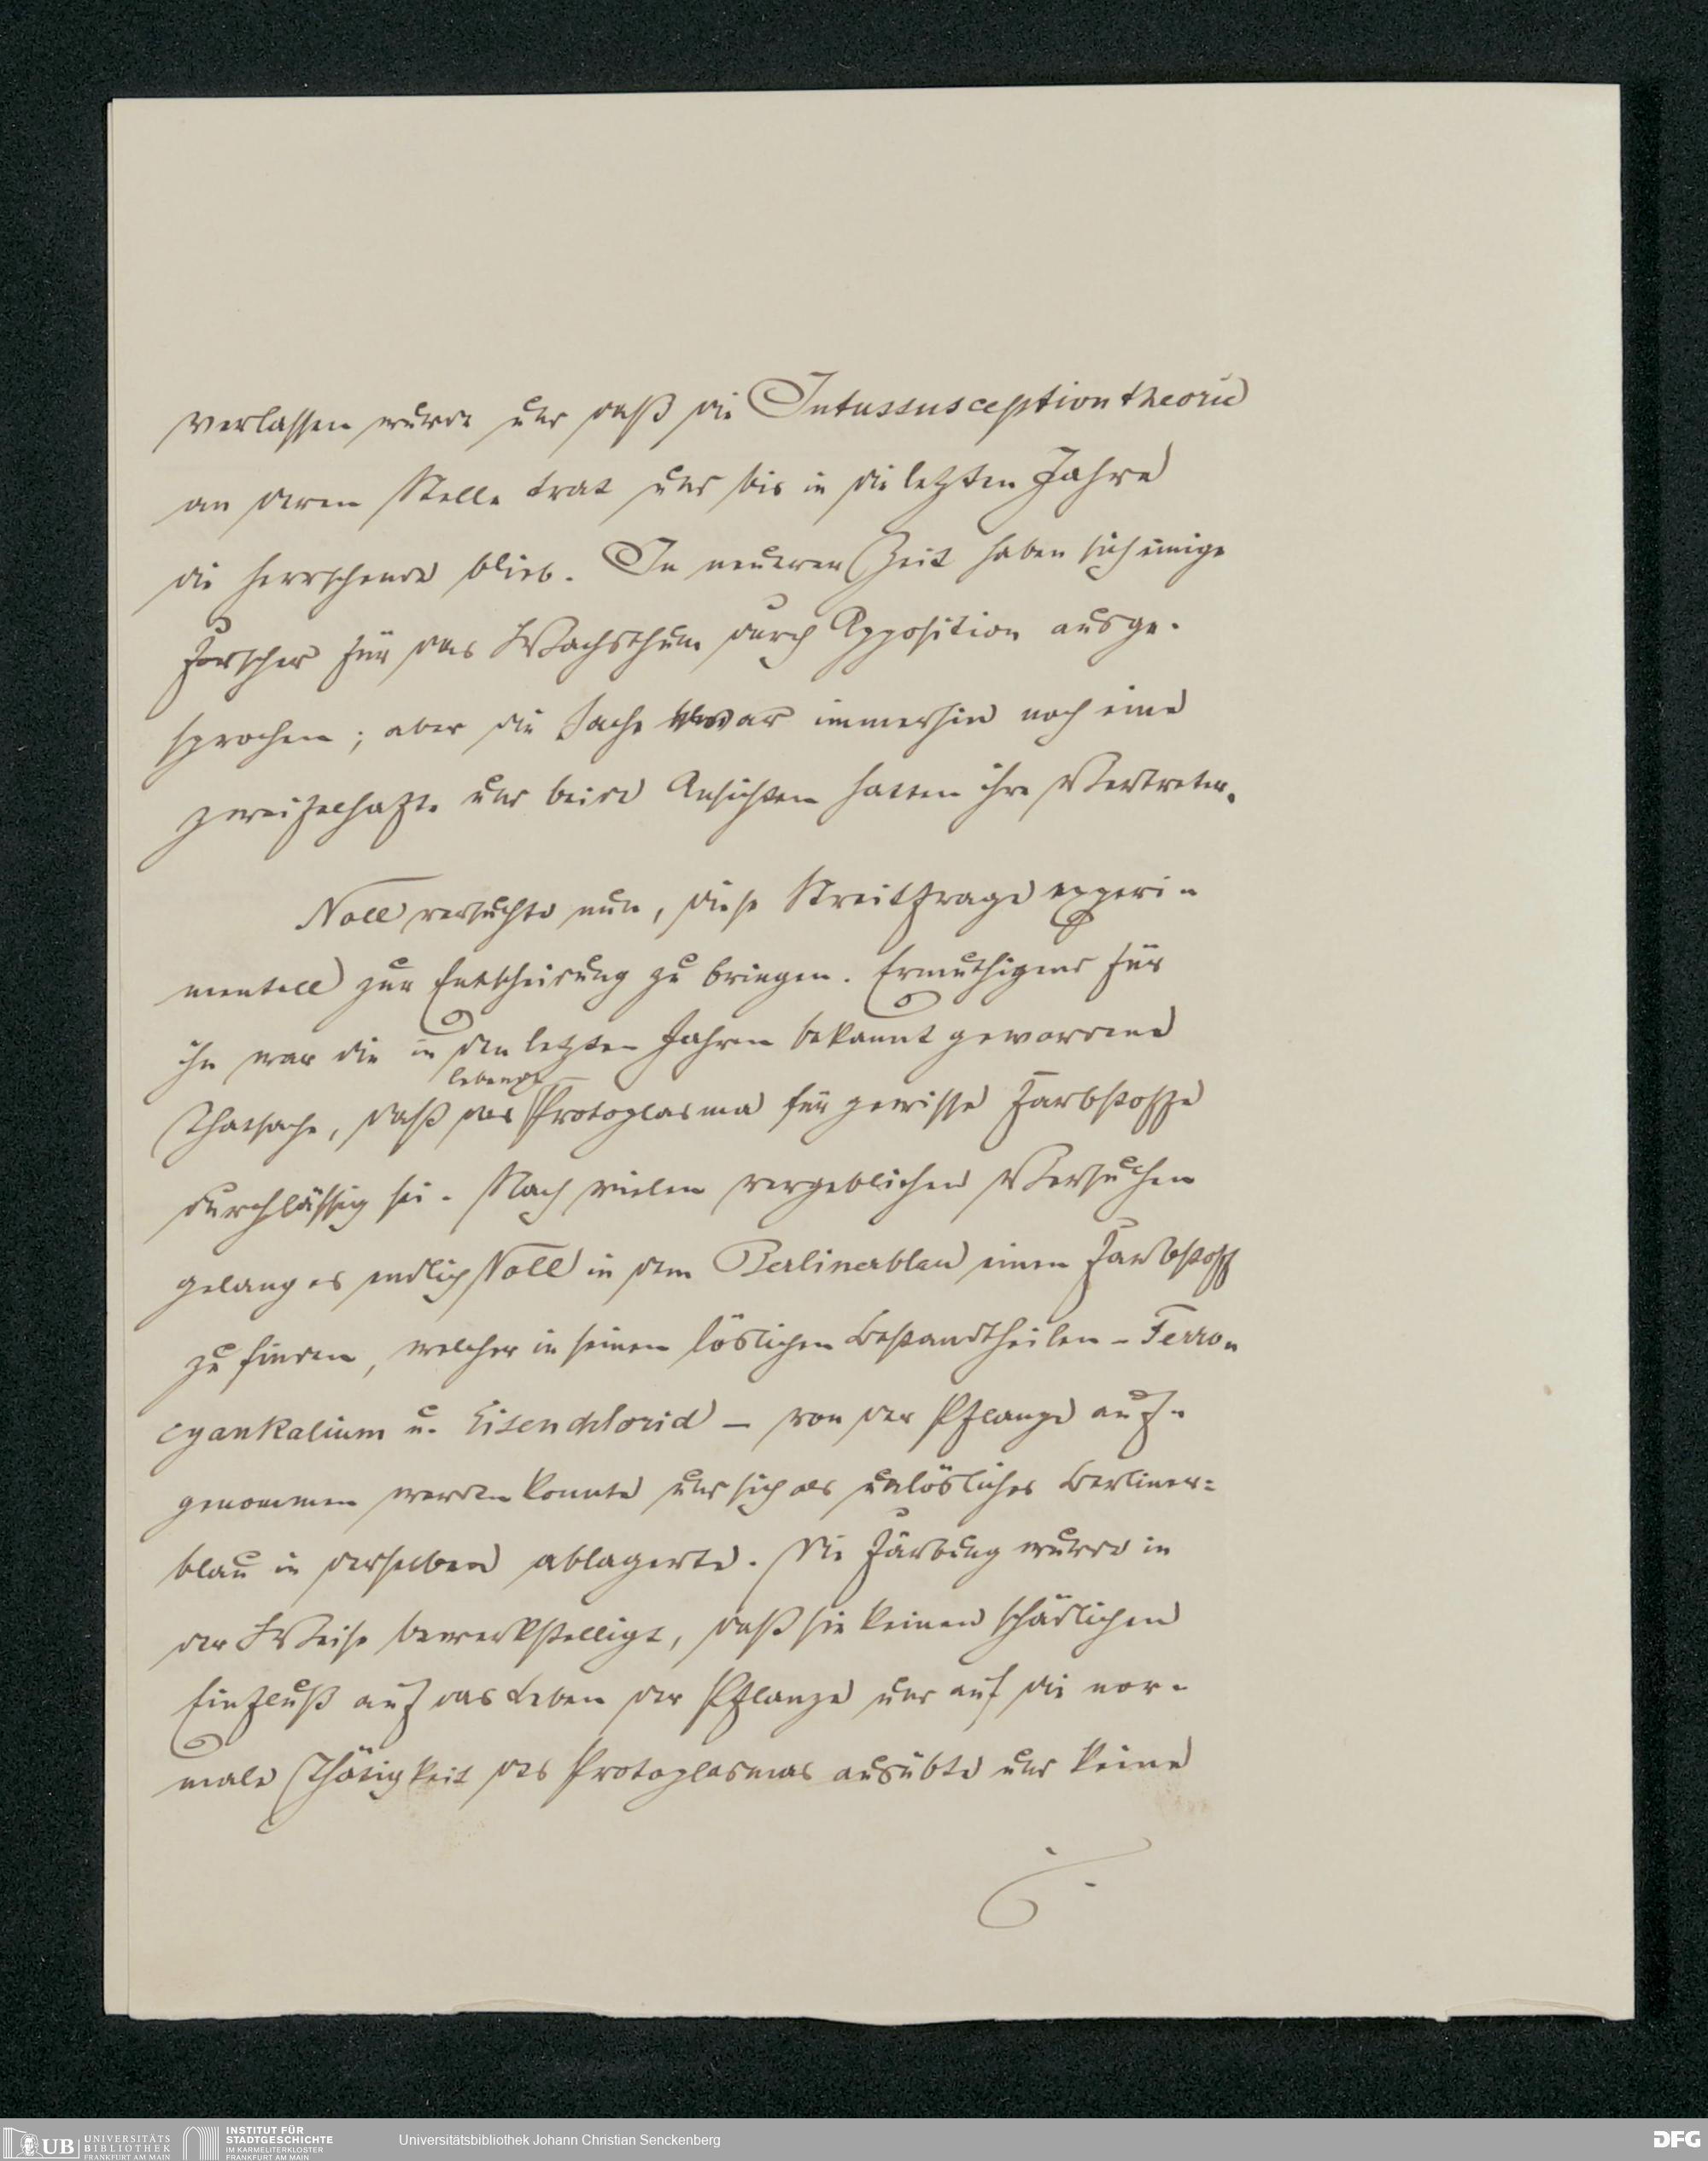 verlassen wurde und daß die Intussusceptiontheorie
an deren Stelle trat und bis in die letzten Jahre
die herrschende blieb. In neuerer Zeit haben sich einige
Forscher für das Wachsthum durch Apposition ausge-
sprochen; aber die Sache war immerhin noch eine
zweifelhafte und beide Ansichten hatten ihre Vertreter.
Noll versuchte nun, diese Streitfrage experi-
mentell zur Entscheidung zu bringen. Ermuthigend für
ihn war die in den letzten Jahren bekannt gewordene
lebende
Thatsache, daß das Protoplasma für gewisse Farbstoffe
durchlässig sei. Nach vielen vergeblichen Versuchen
gelang es endlich Noll in dem Berlinerblau einen Farbstoff
zu finden, welcher in seinen löslichen Bestandtheilen - Ferro-
cyankalium u. Eisenchlorid - von der Pflanze auf-
genommen werden konnte und sich als unlösliches Berliner=
blau in derselben ablagerte. Die Färbung wurde in
der Weise bewerkstelligt, daß sie keinen schädlichen
Einfluß auf das Leben der Pflanze und auf die nor-
male Thätigkeit des Protoplasmas ausübte und keine
UB UNIVERSITÄTS
BIBLIOTHEK
FRANKFURT AM MAIN
INSTITUT FÜR
STADTGESCHICHTE
IM KARMELITERKLOSTER
FRANKFURT AM MAIN
Universitätsbibliothek Johann Christian Senckenberg
DFG